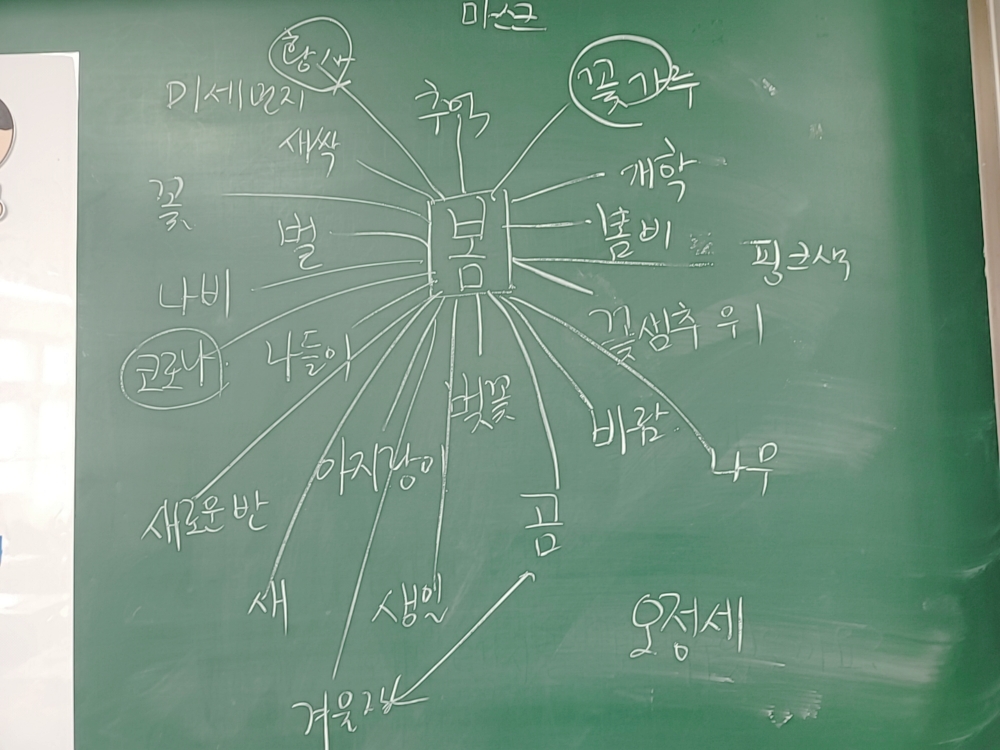 마스크
황사
꽃가루
미세먼지
추억
새싹
개학
꽃
봄
벌
봄비
핑크색
나비
꽃샘추위
코로나
나들이
벚꽃
바람
아지랑이
나무
새로운 반
곰
새
생일
오정세
겨울잠